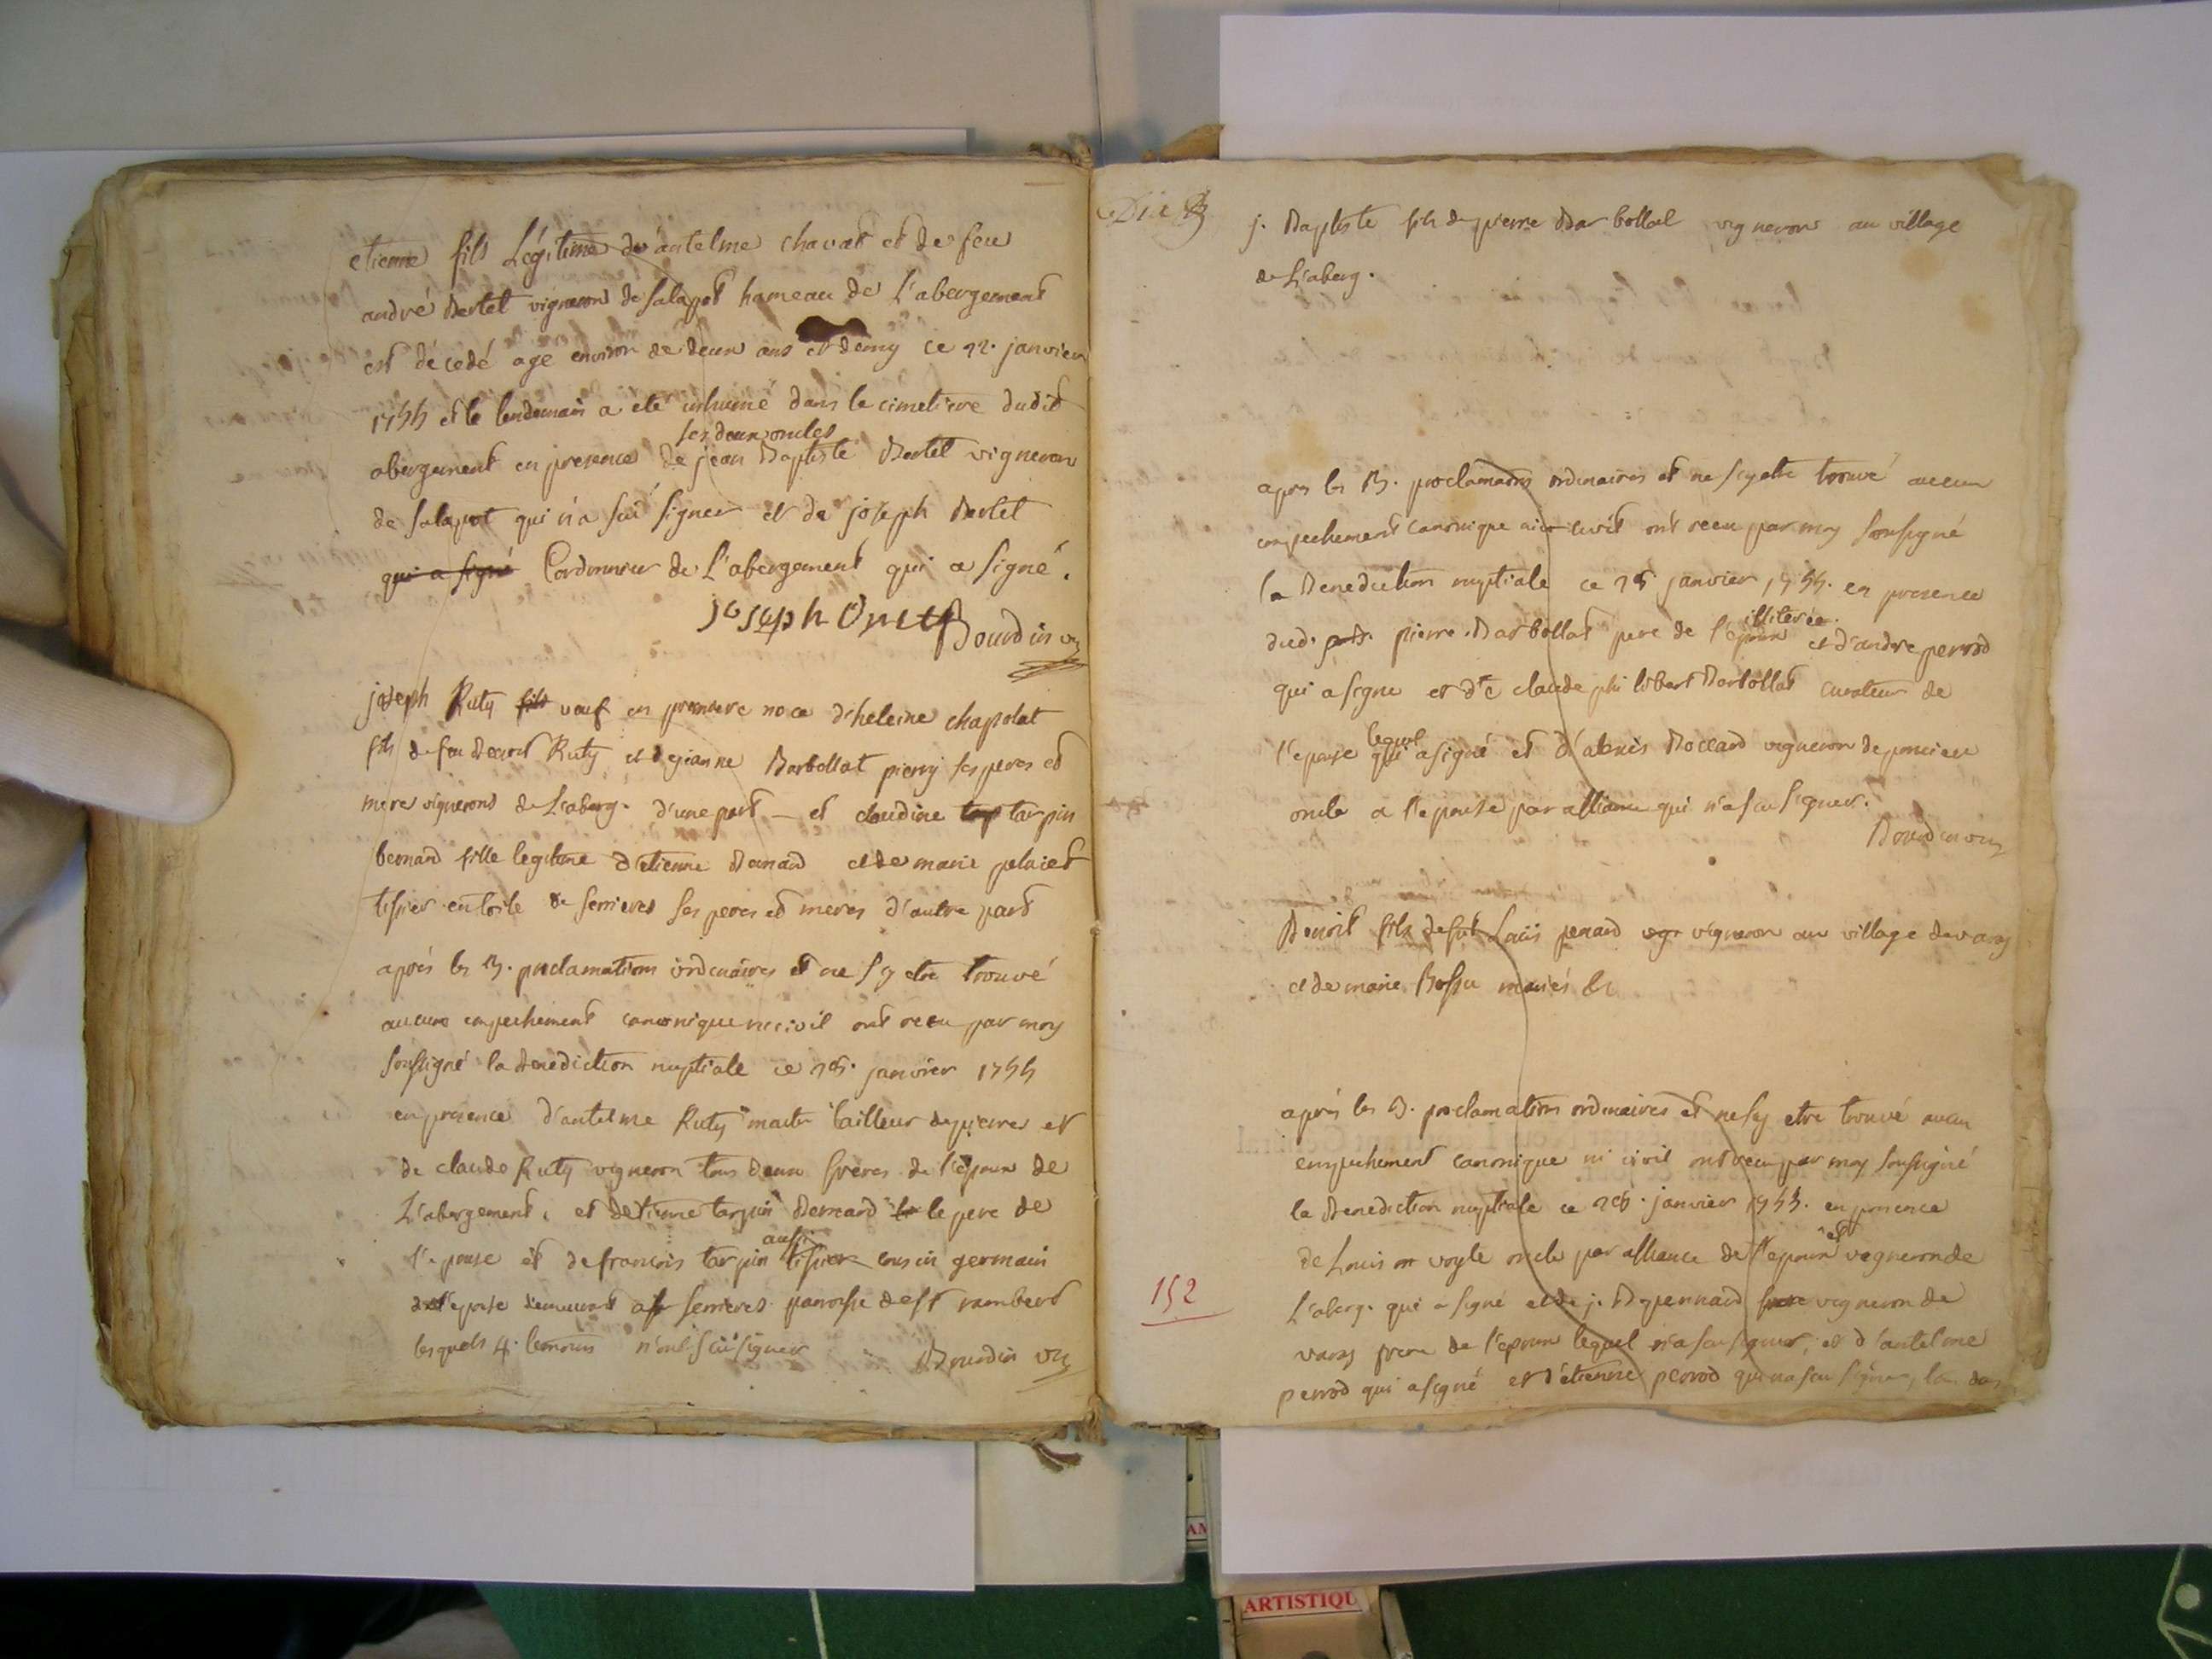 etienne fils Légitime de antelme chavat et de feu
andré Bertet vigneron de salapot hameau de L'abergement
est décedé age environ de deux ans et demy ce 22. janvier
1755 et le lendemain a eté inhumé dans le cimetiere dudit
ses deux oncles
abergement en presence de jean Baptiste Bertet vigneron
de salapot qui n'a sçu signer et de joseph Bertet
qui a signé Cordonnier de L'abergement qui a signé.
joseph Bourdin
joseph Ruty fils veuf en premiere noce d'heleine chapolat
fils de feu Benoit Ruty et de jeanne Barbollat pierry ses peres et
mere vignerons de L'aberg. d'une part – et claudine tarpin
bernard fille legitime d'etienne Bernard et de marie
tissier en toile de serrieres ses peres et meres d'autre part
aprés les 3. proclamations ordinaires et ne s'y etre trouvé
aucuns empechement canonique ni civil ont recu par moy
soussigné la Benediction nuptiale ce 28. janvier 1755
en presence d'antelme Ruty maitre tailleur de pierres et
de claude Ruty vigneron tous deux freres de l'epoux de
L'abergement, et d'etienne tarpin Bernard le pere de
aussi
l'epouse et de francois tarpin tissier cousin germain
de l'epouse demeurant a serrieres paroisse de st rambert
lesquels 4. temoins n'ont sçu signer Bourdin
j. Baptiste fils de pierre Barbollat vigneron au village
de L'aberg.
apres les 3. proclamations ordinaires et ne s'y etre trouvé aucun
empechement canonique ni civil ont recu par moy soussigné
la Benediction nuptiale ce 28 janvier 1755. en presence
illiterée.
dud. pierre Barbollat pere de l'epoux et d'andre perrod
qui a signe et de claude philibert Barbollat curateur de
lequel
l'epouse qui a signé et d'alexis Boccard vigneron de poncieu
oncle a l'epouse par alliance qui n'a scu signer.
Bourdin
Benoit fils de Louis penard vigneron au village de varey
et de marie Bossu mariés &c
aprés les 3. proclamations ordinaires et ne s'y etre trouvé aucun
empechement canonique ni civil ont recu par moy soussigné
la Benediction nuptiale ce 28. janvier 1755. en presence
et
de Louis voyle oncle par alliance de l'epoux vigneron de
152
L'aberg. qui a signé et de j. B. pennard frere vigneron de
varey frere de l'epoux lequel n'a scu signer, et d'antelme
perrod qui a signé et d'étienne perrod qui n'a scu signer,